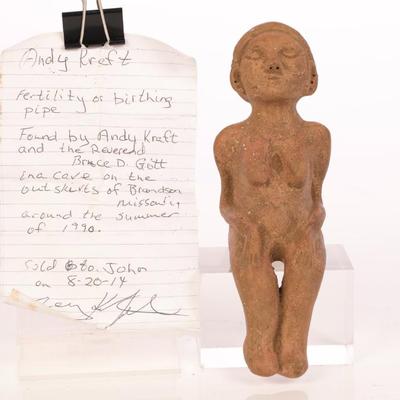 Andy Kraft
Fertility or birthing
pipe
Found by Andy Kraft
and the Reverend
Bruce D. Gott
in a cave on the
outskirts of Brandson
missouri
around the summer
of 1990.
Sold to John
on 8-20-14